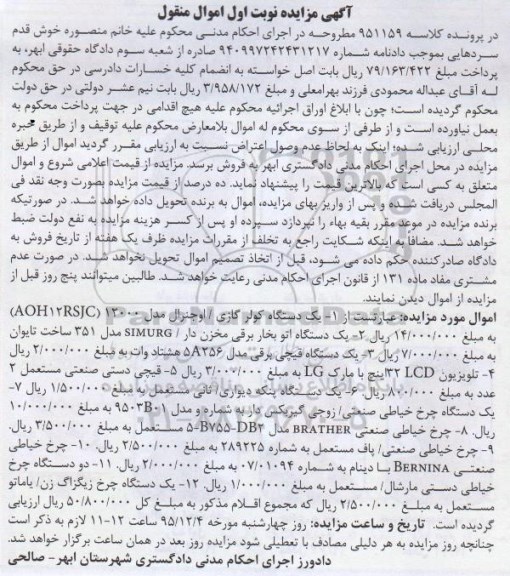 آگهی مزایده نوبت اول اموال منقول
در پرونده کلاسه ۹۵۱۱۵۹ مطروحه در اجرای احکام مدنی محکوم علیه خانم منصوره خوش قدم
سردهایی بموجب دادنامه شماره ۹۴۰۹۹۷۲۴۲۴۳۱۲۱۷ صادره از شعبه سوم دادگاه حقوقی ابهر، به
پرداخت مبلغ ۷۹/۱۶۳/۴۲۲ ریال بابت اصل خواسته به انضمام کلیه خسارات دادرسی در حق محکوم
له آقای عبداله محمودی فرزند بهرامعلی و مبلغ ۳/۹۵۸/۱۷۲ ریال بابت نیم عشر دولتی در حق دولت
محکوم گردیده است؛ چون با ابلاغ اوراق اجرائیه محکوم علیه هیچ اقدامی در جهت پرداخت محکوم به
بعمل نیاورده است و از طرفی از سوی محکوم له اموال بلامعارض محکوم علیه توقیف و از طریق خبره
محلی ارزیابی شده؛ اینک به لحاظ عدم وصول اعتراض نسبت به ارزیابی مقرر گردید اموال از طریق
مزایده در محل اجرای احکام مدنی دادگستری ابهر به فروش برسد. مزایده از قیمت اعلامی شروع و اموال
متعلق به کسی است که بالاترین قیمت را پیشنهاد نماید. ده درصد از قیمت مزایده بصورت وجه نقد فی
المجلس دریافت شده و پس از واریز بهای مزایده، اموال به برنده تحویل داده خواهد شد. در صورتیکه
برنده مزایده در موعد مقرر بقیه بهاء را نپردازد سپرده او پس از کسر هزینه مزایده به نفع دولت ضبط
خواهد شد. مضافا به اینکه شکایت راجع به تخلف از مقررات مزایده ظرف یک هفته از تاریخ فروش به
دادگاه صادرکننده حکم داده می شود، قبل از اتخاذ تصمیم اموال تحویل نخواهد شد. در صورت عدم
مشتری مفاد ماده ۱۳۱ از قانون اجرای احکام مدنی رعایت خواهد شد. طالبین میتوانند پنج روز قبل از
مزایده از اموال دیدن نمایند.
اموال مورد مزایده: عبارتست از ۱- یک دستگاه کولر گازی / اوجنرال مدل ۱۳۰۰۰ (AOH۱۲RSJC)
به مبلغ ۱۴/۰۰۰/۰۰۰ ریال ۲- یک دستگاه اتو بخار برقی مخزن دار / SIMURG مدل ۳۵۱ ساخت تایوان
به مبلغ ۷/۰۰۰/۰۰۰ ریال ۳- یک دستگاه قیچی برقی مدل ۵۸۲۵۶ هشتاد وات به مبلغ ۲/۰۰۰/۰۰۰ ریال
۴- تلویزیون LCD ۳۲اینچ با مارک LG به مبلغ ۳/۰۰۰/۰۰۰ ریال ۵- قیچی دستی صنعتی مستعمل ۲
عدد به مبلغ ۸۰۰/۰۰۰ ریال ۶- یک دستگاه پنکه دیواری/ تانی مستعمل به مبلغ ۱/۵۰۰/۰۰۰ ریال ۷-
یک دستگاه چرخ خیاطی صنعتی/ زوجی گیربکس دارد شماره و مدل ۹۵۰۳B۰۱ به مبلغ ۱۰/۰۰۰/۰۰۰
ریال. ۸- چرخ خیاطی صنعتی BRATHER مدل ۵-B۷۵۵-DB۲ مستعمل به مبلغ ۳/۵۰۰/۰۰۰ ریال.
۹- چرخ خیاطی صنعتی/ پاف مستعمل به شماره ۲۸۹۲۲۵ به مبلغ ۲/۵۰۰/۰۰۰ ریال. ۱۰- چرخ خیاطی
صنعتی BERNINA با دینام به شماره ۰۷/۰۱۰۹۴ به مبلغ ۲/۰۰۰/۰۰۰ ریال. ۱۱- دو دستگاه چرخ
خیاطی دستی مارشال/ مستعمل به مبلغ ۱/۰۰۰/۰۰۰ ریال. ۱۲- یک دستگاه چرخ زیگزاگ زن/ یاماتو
مستعمل به مبلغ ۲/۵۰۰/۰۰۰ ریال که مجموع اقلام مذکور به مبلغ کل ۵۰/۸۰۰/۰۰۰ ریال ارزیابی
گردیده است. تاریخ و ساعت مزایده: روز چهارشنبه مورخه ۹۵/۱۲/۴ ساعت ۱۲-۱۱ لازم به ذکر است
چنانچه روز مزایده به هر دلیلی مصادف با تعطیلی شود مزایده روز بعد در همان ساعت برگزار خواهد شد.
دادورز اجرای احکام مدنی دادگستری شهرستان ابهر- صالحی